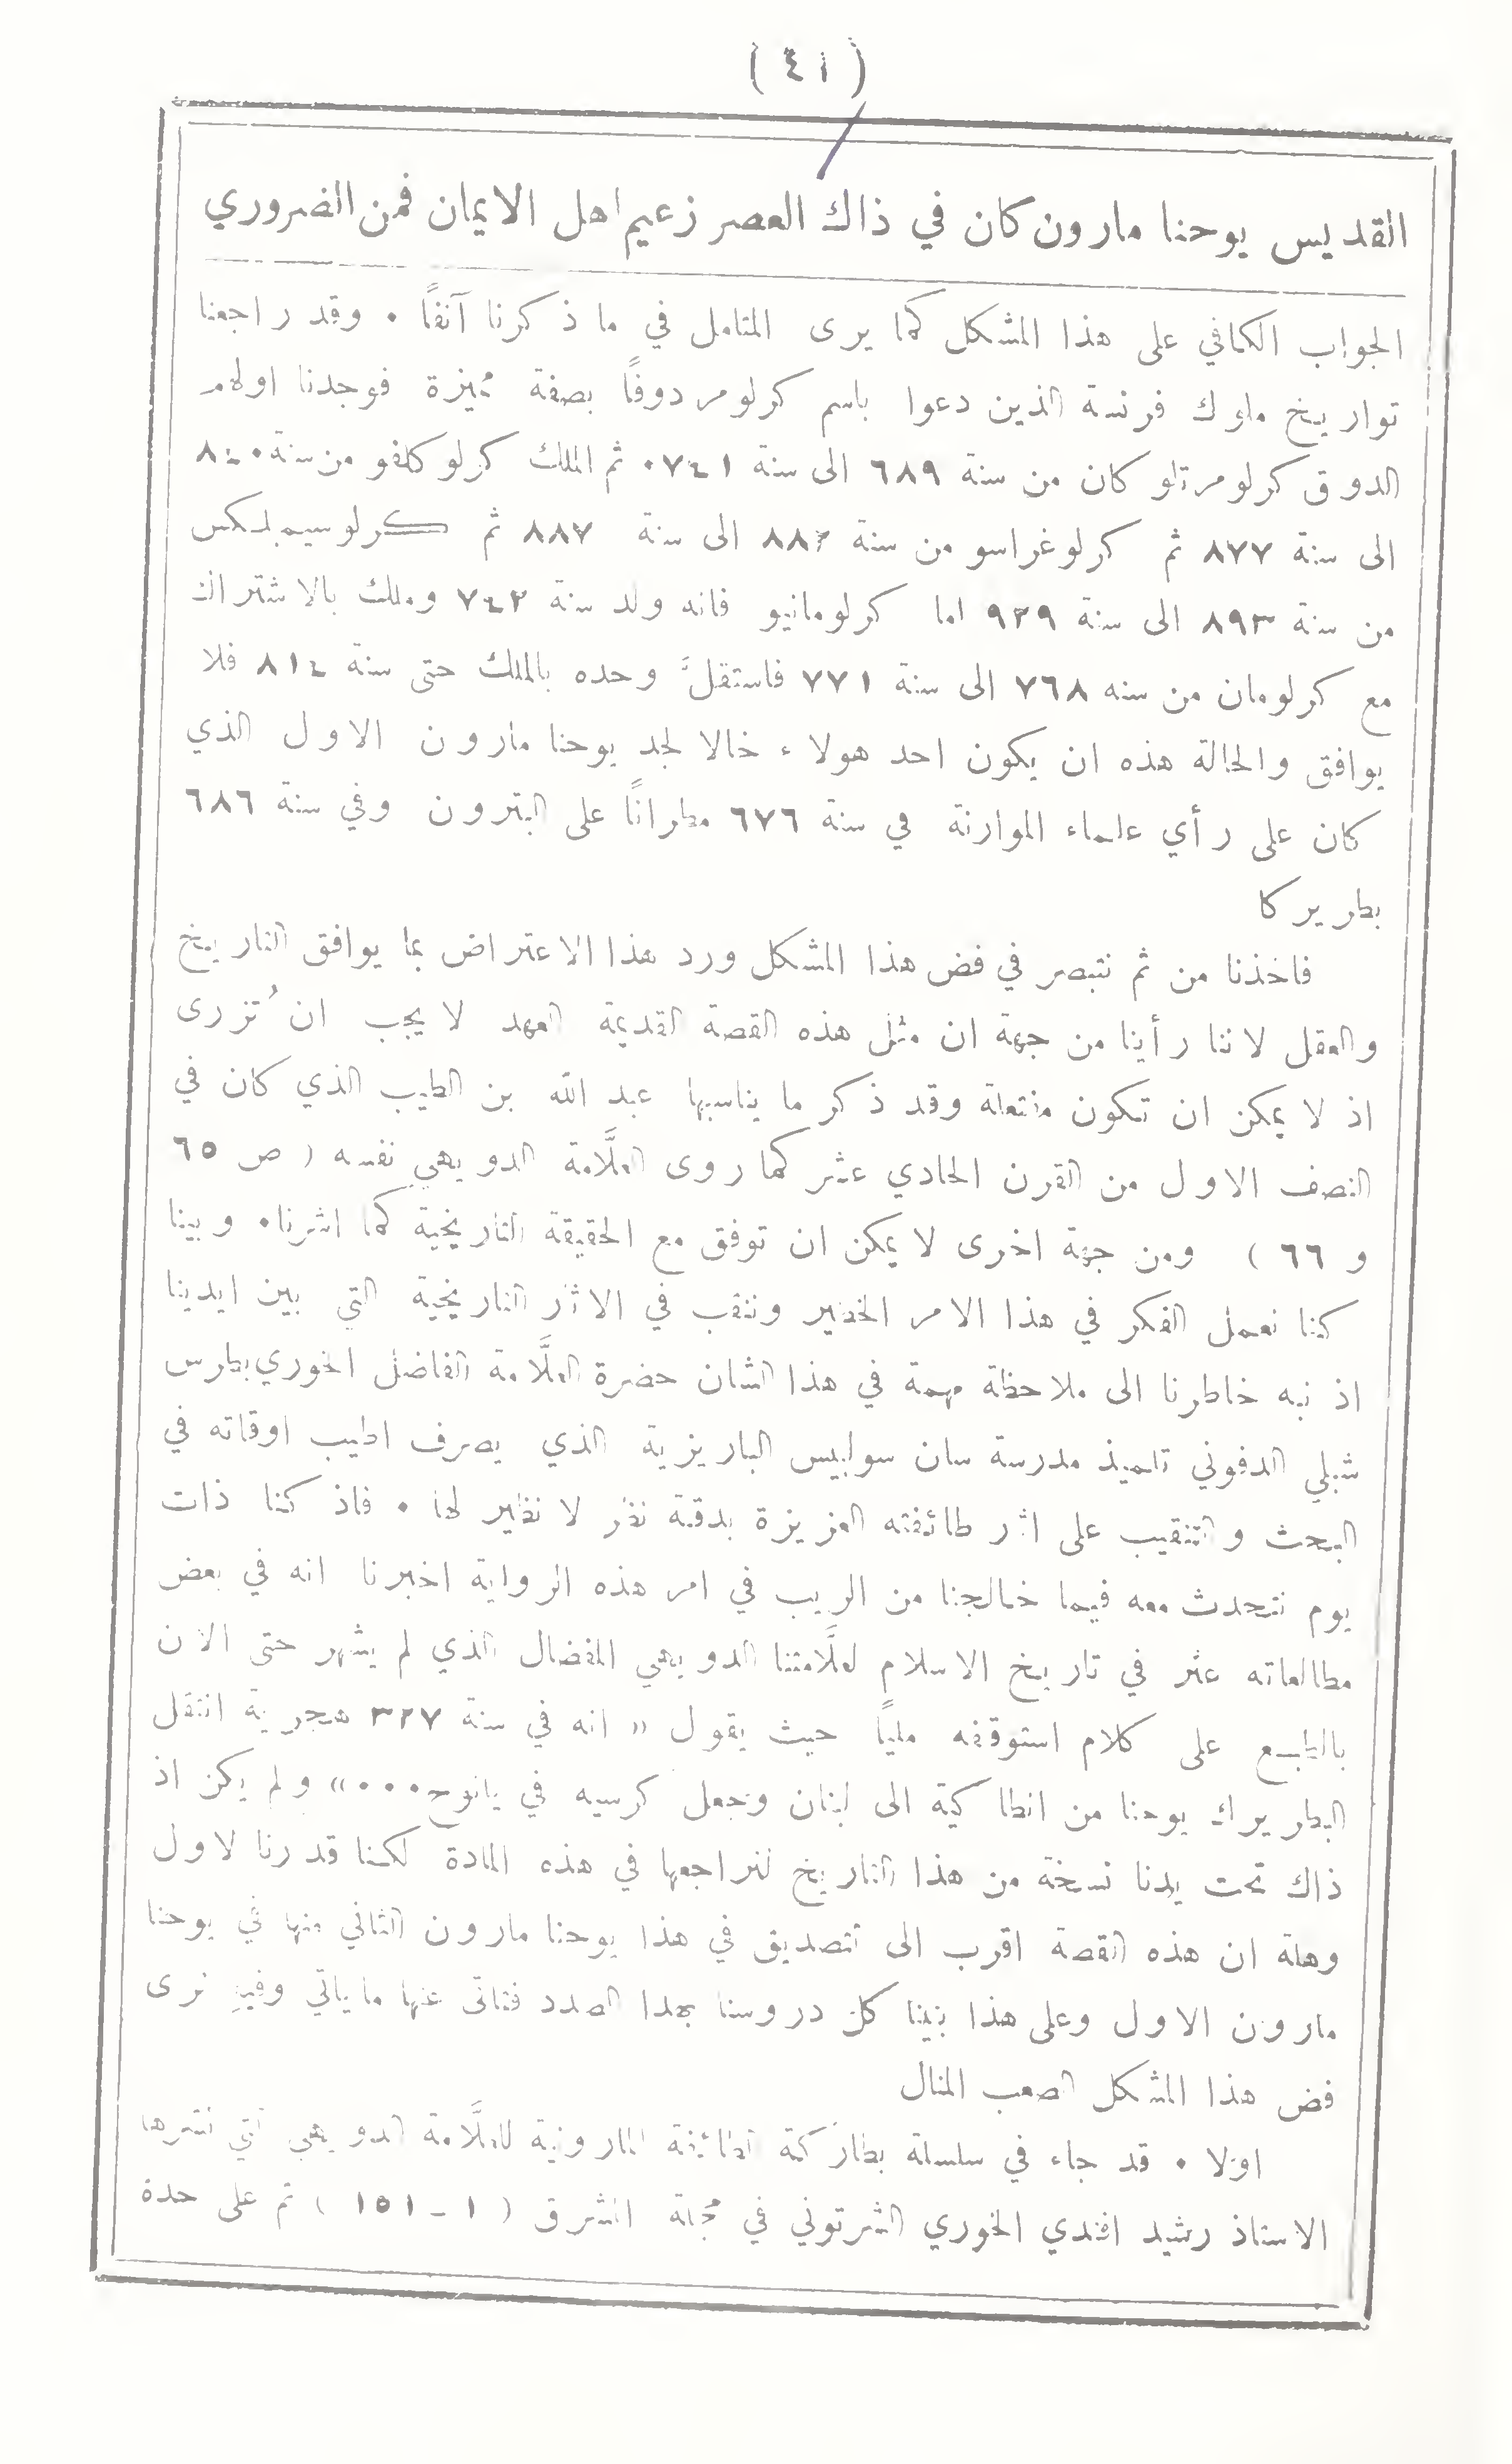 ( ٤١ )
القديس يوحنا مارون كان في ذاك العصر زعيم اهل الايمان فمن الضروري
الجواب الكافي على هذا المشكل كما يرى المتامل في ما ذكرنا آنفًا ٠ وقد راجعنا
تواريخ ملوك فرنسة الذين دعوا باسم كرلومر دوقًا بصفة مميزة فوجدنا اولهم
الدوق كرلومرتلو كان من سنة ٦٨٩ الى سنة ٧٤١٠ ثم الملك كرلو كلفو من سنة ٨٤٠
الى سنة ٨٧٧ ثم كرلوغراسو من سنة ٨٨٢ الى سنة ٨٨٧ ثم كرلوسيمبلكس
من سنة ٨٩٣ الى سنة ٩٢٩ اما كرلومانيو فانه ولد سنة ٧٤٢ وملك بالاشتراك
مع كرلومان من سنه ٧٦٨ الى سنة ٧٧١ فاستقلَّ وحده بالملك حتى سنة ٨١٤ فلا
يوافق والحالة هذه ان يكون احد هولاء خالا لجد يوحنا مارون الاول الذي
كان على رأي علماء الموارنة في سنة ٦٧٦ مطرانًا على البترون وفي سنة ٦٨٦
بطريركا
فاخذنا من ثم نتبصر في فض هذا المشكل ورد هذا الاعتراض بما يوافق التاريخ
والعقل لاننا رأينا من جهة ان مثل هذه القصة القديمة العهد لا يجب ان تُزرى
اذ لا يمكن ان تكون منتعلة وقد ذكر ما يناسبها عبد الله بن الطيب الذي كان في
النصف الاول من القرن الحادي عشر كما روى العلَّامة الدويهي نفسه ( ص ٦٥
و ٦٦ ) ومن جهة اخرى لا يمكن ان توفق مع الحقيقة التاريخية كما اشرنا٠ وبينا
كنا نعمل الفكر في هذا الامر الخطير وننقب في الاثار التاريخية التي بين ايدينا
اذ نبه خاطرنا الى ملاحظة مهمة في هذا الشان حضرة العلَّامة الفاضل الخوري بطرس
شبلي الدفوني تلميذ مدرسة سان سولبيس الباريزية الذي يصرف اطيب اوقاته في
البحث والتنقيب على اثار طائفته العزيزة بدقة نظر لا نظير لها ٠ فاذ كنا ذات
يوم نتحدث معه فيما خالجنا من الريب في امر هذه الرواية اخبرنا انه في بعض
مطالعاته عثر في تاريخ الاسلام لعلَّامتنا الدويهي المفضال الذي لم يشهر حتى الان
بالطبع على كلام استوقفه مليًّا حيث يقول « انه في سنة ٣٢٧ هجرية انتقل
البطريرك يوحنا من انطاكية الى لبنان وجعل كرسيه في يانوح٠٠٠» ولم يكن اذ
ذاك تحت يدنا نسخة من هذا التاريخ لنراجعها في هذه المادة لكننا قدرنا لاول
وهلة ان هذه القصة اقرب الى التصديق في هذا يوحنا مارون الثاني منها في يوحنا
مارون الاول وعلى هذا بنينا كل دروسنا بهذا الصدد فتاتى عنها ما ياتي وفيه نرى
فض هذا المشكل الصعب المنال
اولا ٠ قد جاء في سلسلة بطاركة الطائفة المارونية للعلَّامة الدويهي التي نشرها
الاستاذ رشيد افندي الخوري الشرتوني في مجلة المشرق ( ١ - ١٥١ ) ثم على حدة